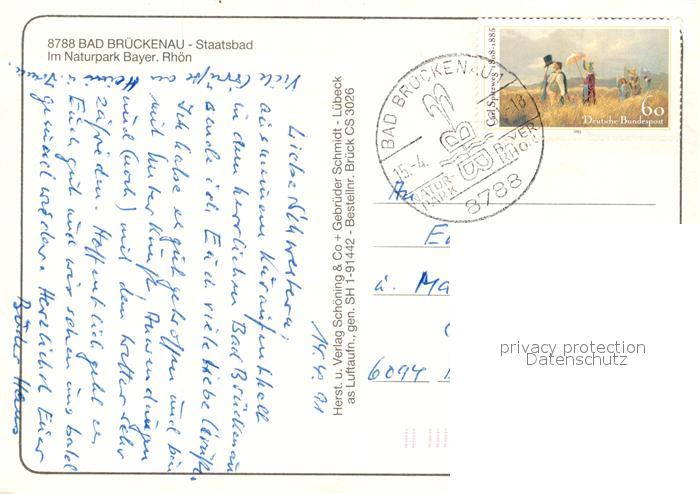 8788 BAD BRÜCKENAU - Staatsbad
Im Naturpark Bayer. Rhön
15.4.91
Liebe Schwestern,
aus meinem Kuraufenthalt
in dem herrlichen Bad Brückenau
sende ich Euch viele liebe Grüße.
Ich habe es gut getroffen und bin
mit Unterkunft, Anwendungen
und (noch) mit dem Wetter sehr
zufrieden. Hoffentlich geht es
Euch gut und wir sehen uns bald
gesund wieder. Herzlichst Euer
Bruder Hans
Viele Grüße an
Herst. u. Verlag Schöning & Co + Gebrüder Schmidt - Lübeck
als Luftaufn., gen. SH 1-91442 - Bestellnr. Brück CS 3026
BAD BRÜCKENAU
15.-4.
-18
NATUR-
PARK
BAYER.
RHÖN
8788
Carl Spitzweg 1808-1885
60
Deutsche Bundespost
An
u. Ma
6094
privacy protection
Datenschutz